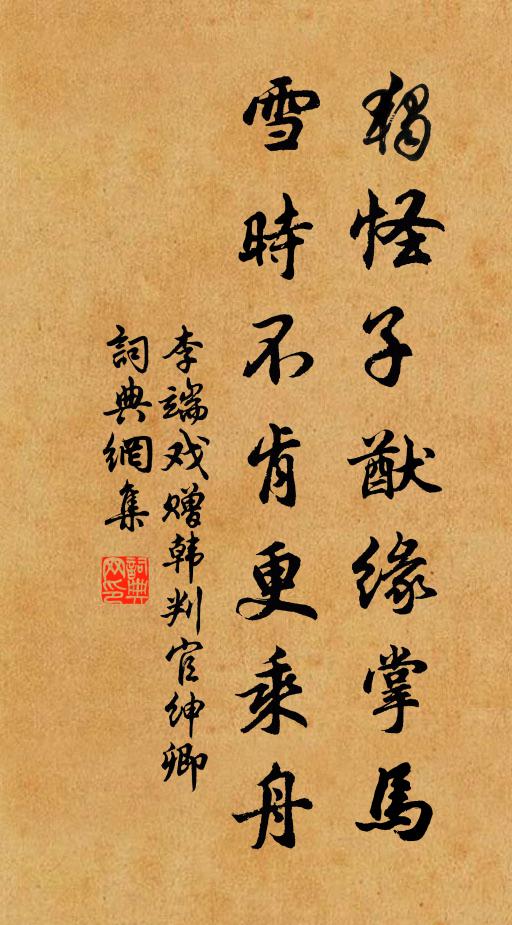 獨怪子猷緣掌馬
雪時不肯更乘舟
李端戏赠韩判官绅卿
詞典網集
詞典网印